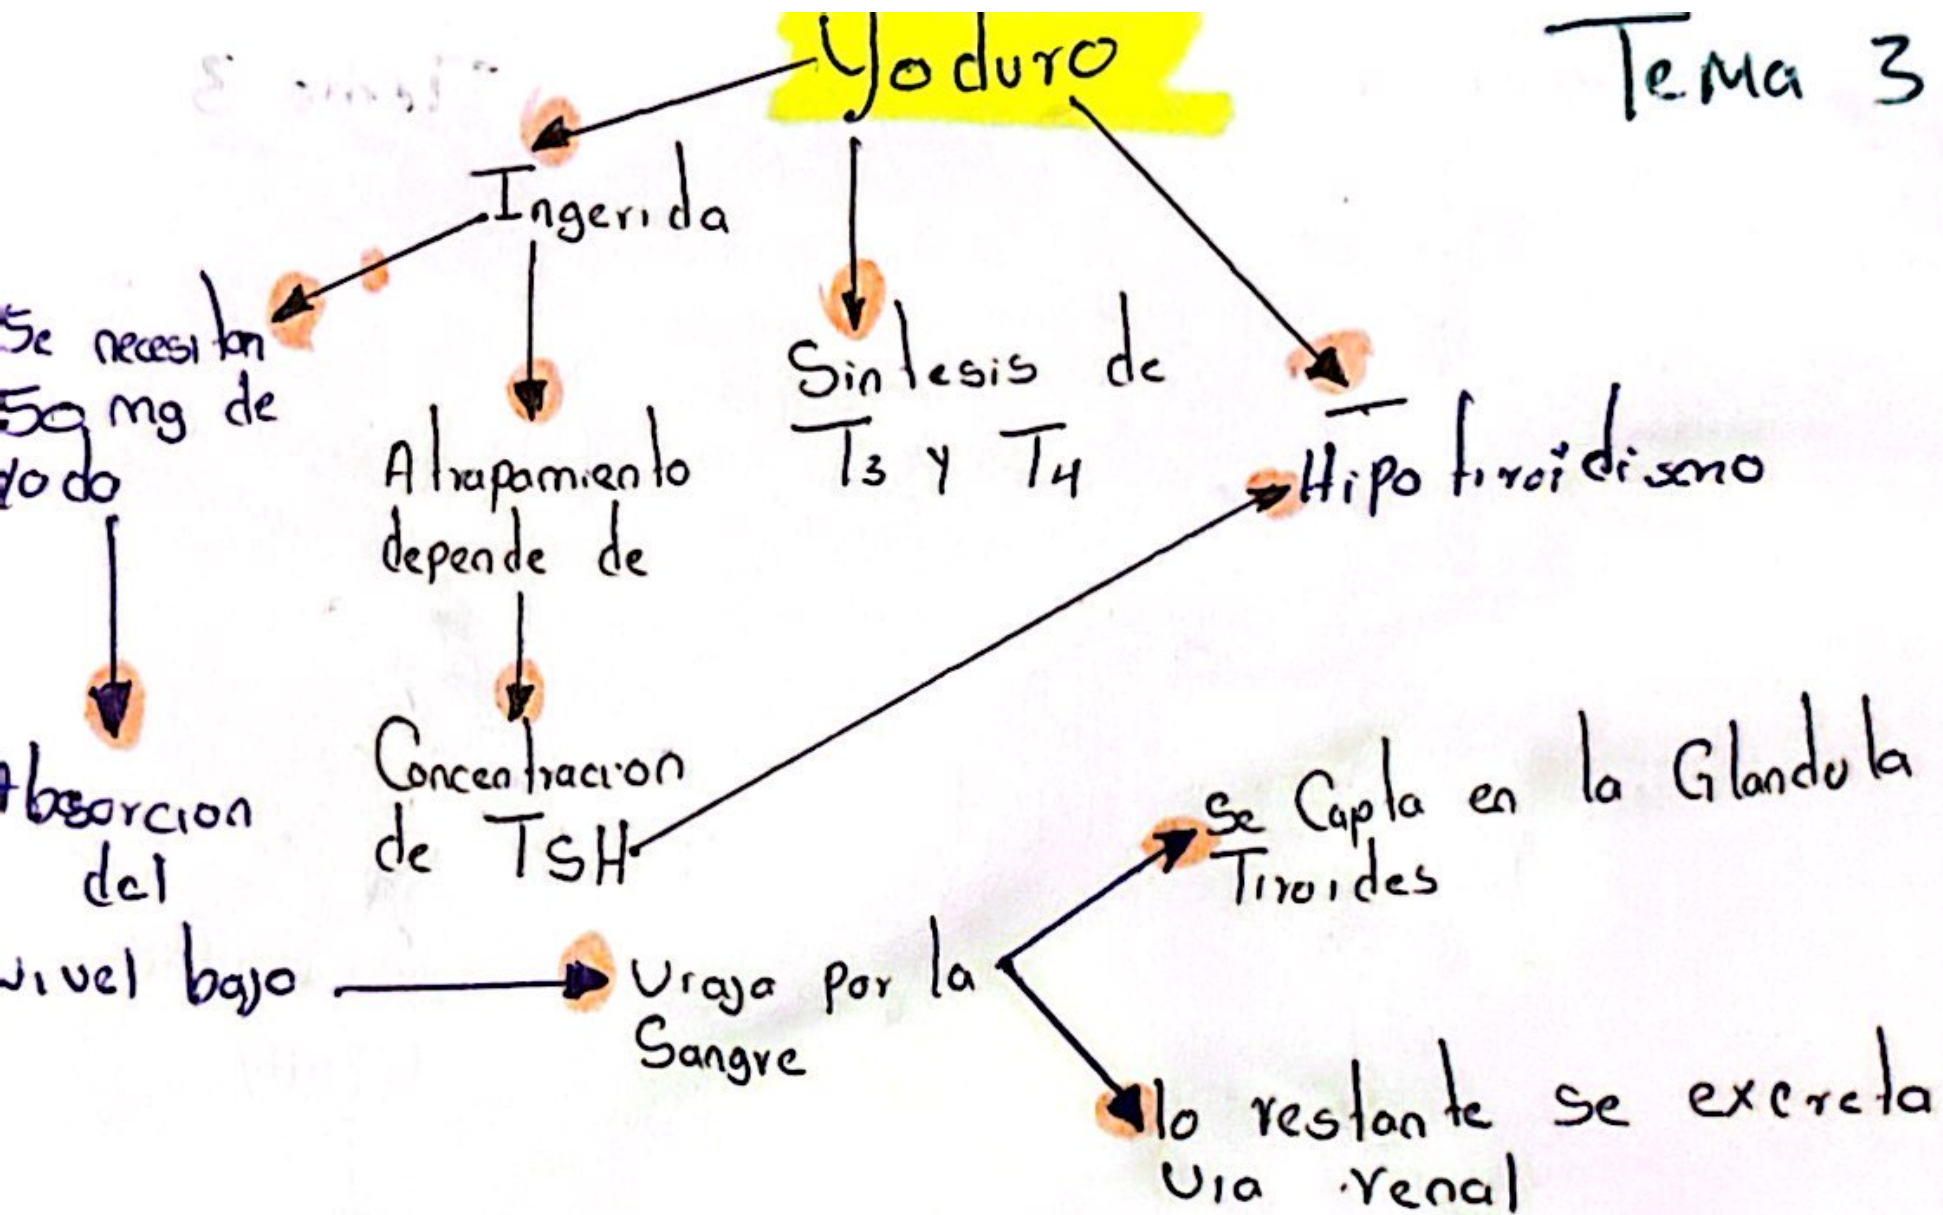 Yoduro
Tema 3
Ingerida
Se necesitan
50 mg de
yodo
Atrapamiento
depende de
Sintesis de
T3 y T4
Hipotiroidismo
Absorcion
del
nivel bajo
Concentracion
de TSH
Viaja por la
Sangre
Se Capta en la Glandula
Tiroides
lo restante se excreta
via renal